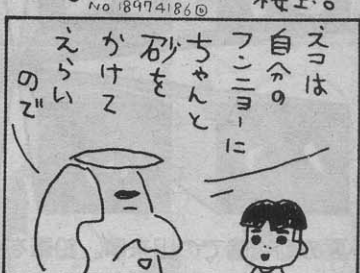 No 18974186
ネコは
自分の
フンニョーに
ちゃんと
砂を
かけて
えらい
ので